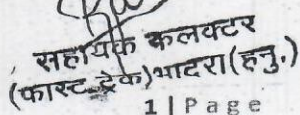 सहायक कलक्टर
(फास्ट ट्रेक)भादरा(हनु.)
1 | Page